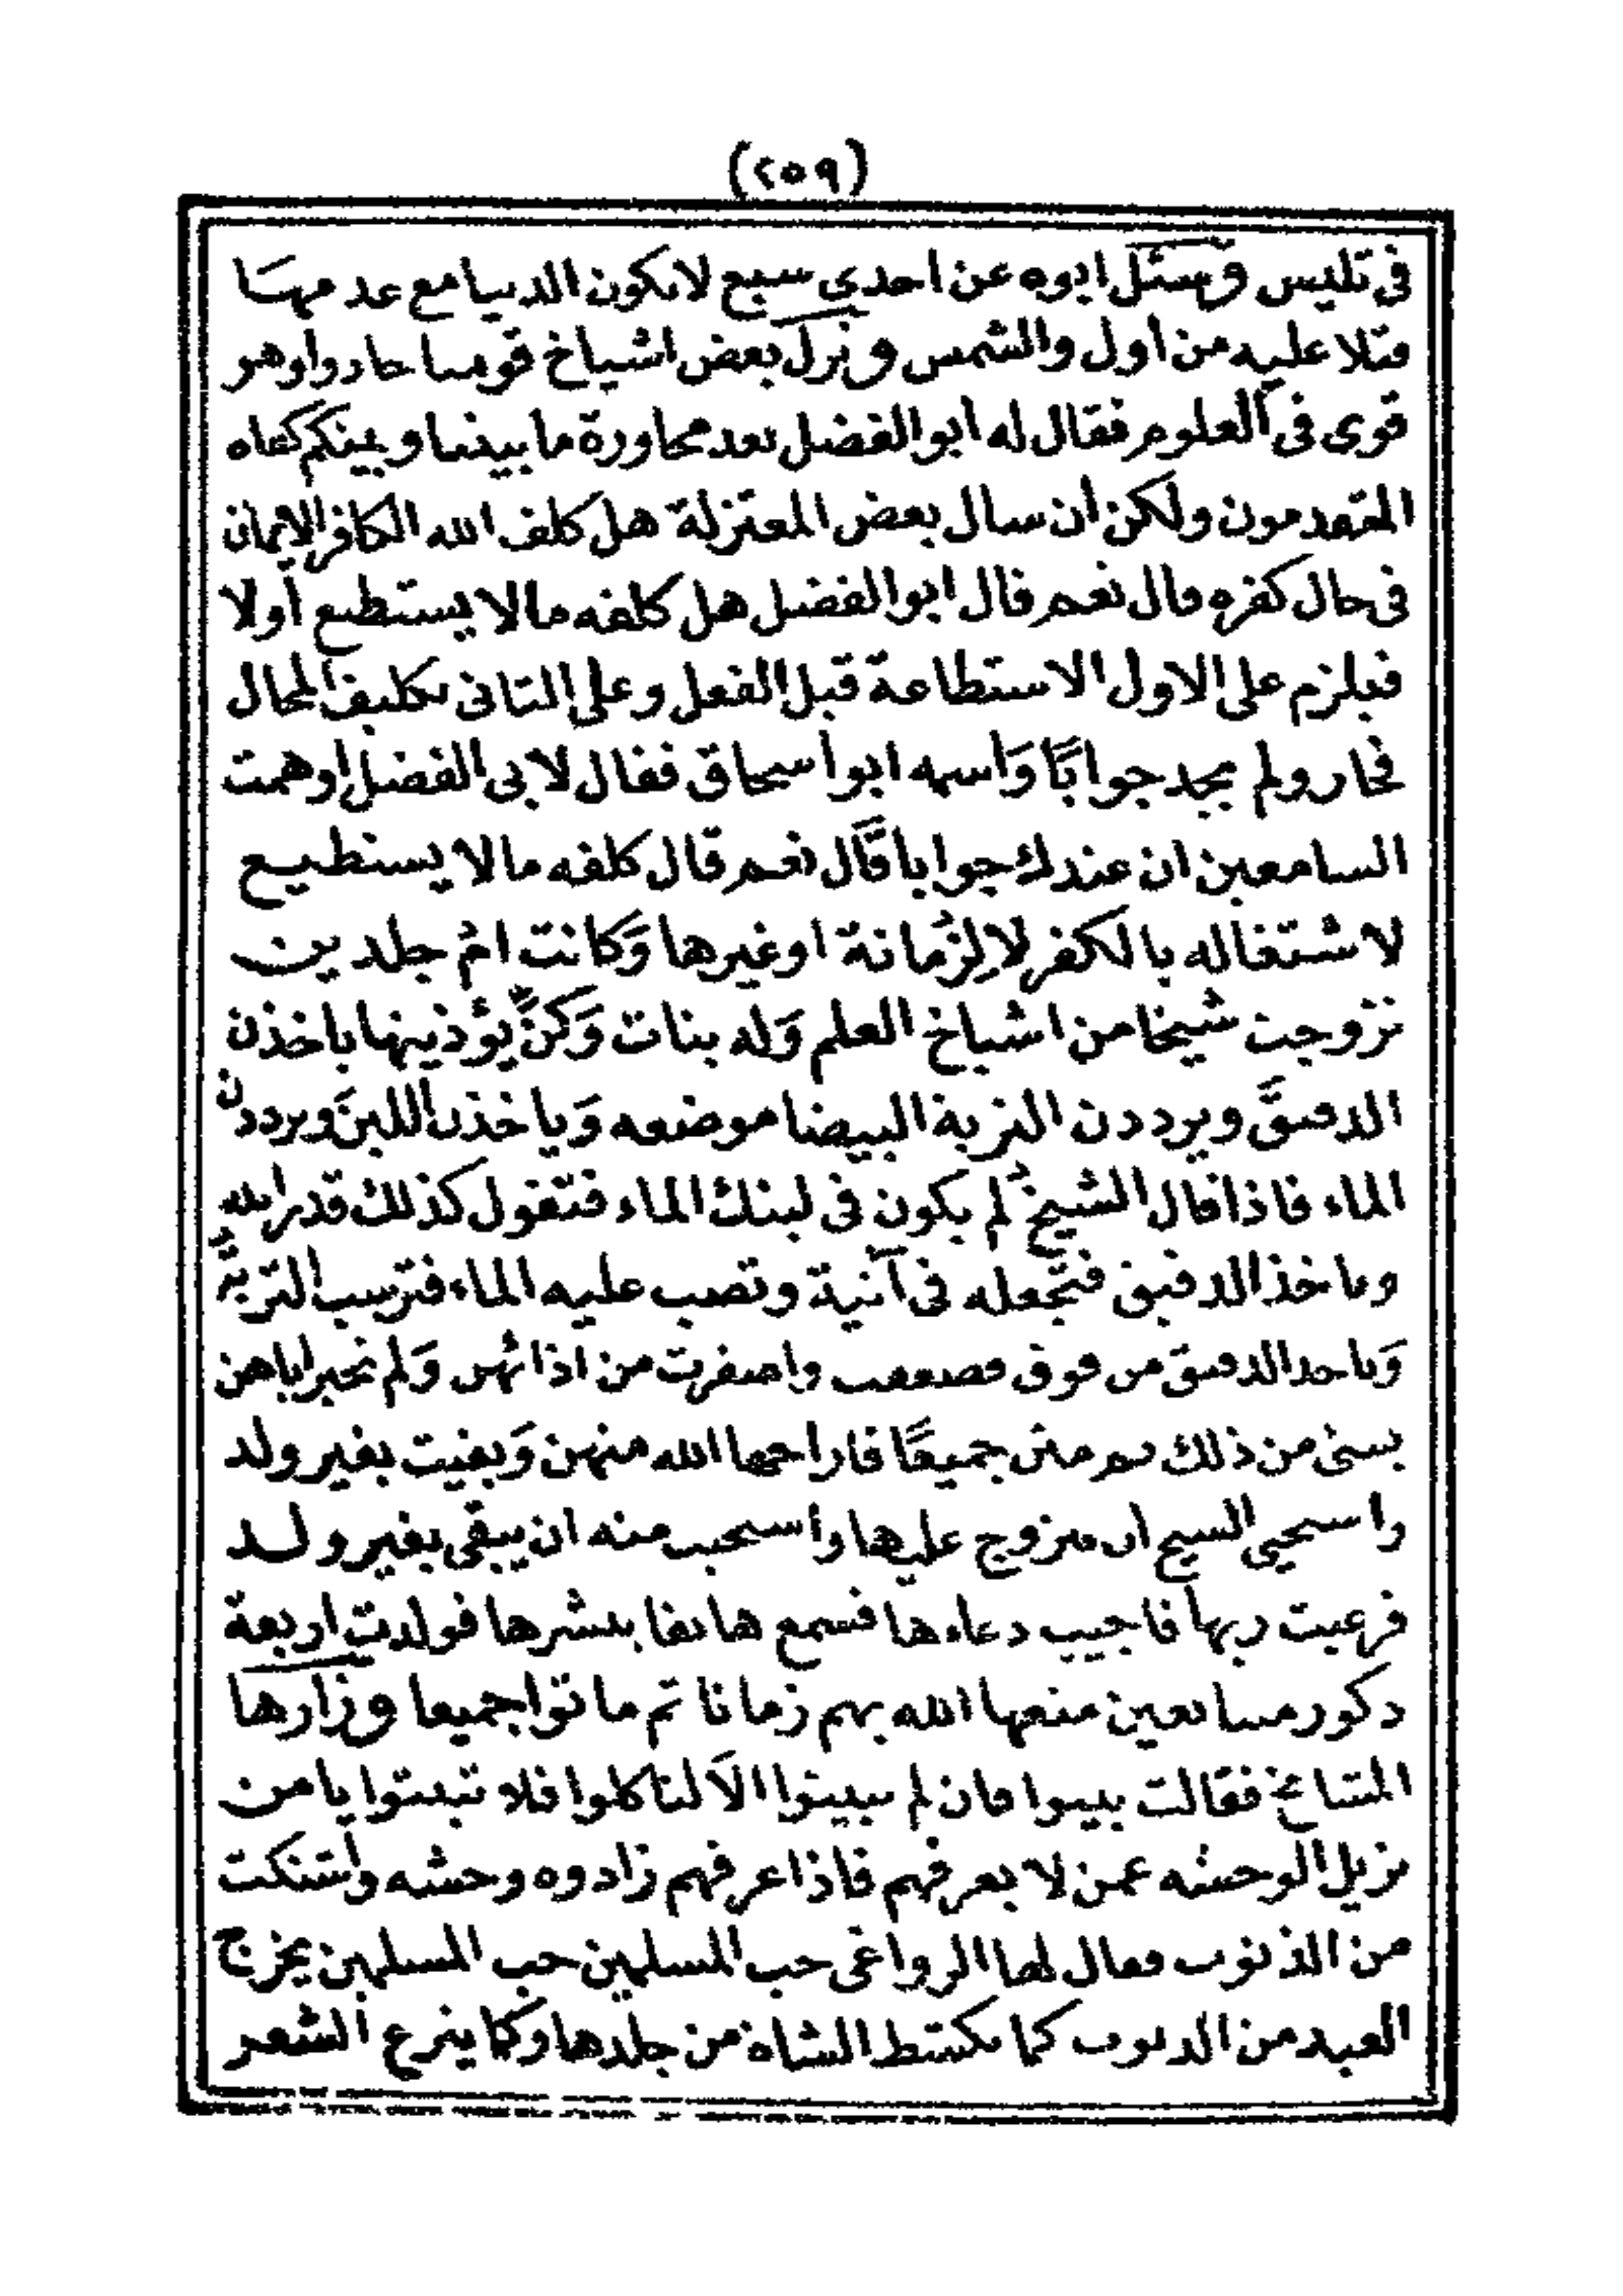 (٢٥٩)
فى تليس وسئل ابوه عن احدى سبع لا تكون الدنيا مع عدمها
فتلا عليه من اول والشمس ونزل بعض اشياخ قومنا حادوا وهو
قوى فى العلوم فقال له ابو الفضل بعد محاورة ما بيننا وبينكم كفاه
المتقدمون ولكن ان سال بعض المعتزلة هل كلف الله الكافر الايمان
فى حال كفره قال نعم قال ابو الفضل هل كلفه مالا يستطيع أولا
فيلزم على الاول الاستطاعة قبل الفعل وعلى الثانى تكليف المحال
فحار ولم يجد جوابًا وَاسمه ابو اسحاق فقال لابى الفضل اوهمت
السامعين ان عندك جوابا قَال نعم قال كلفه مالا يستطيع
لاشتغاله بالكفر لا لِزَمانة اوغيرها وَكانت ام جلدين
تزوجت شيخا من اشياخ العلم وَله بنات وَكنّ يؤذينها ياخذن
الدقيقَ ويرددن التربة البيضا موضعه وَياخذن اللبنَ ويرددن
الماء فاذا قال الشيخ لم يكون فى لبنك الماء فتقول كذلك قدر الله
وتاخذ الدقيق فتجعله فى آنية وتصب عليه الماء فترسب التربة
وَتاخد الدقيقَ من فوق فضعفت واصفرت من اذائهن وَلم تخبر اباهن
بشئ من ذلك ثم متن جميعًا فاراحها الله منهن وَبقيت بغير ولد
واستحيى الشيخ ان يتزوج عليها واستحيت منه ان يبقى بغير ولد
فرغبت ربها فاجيب دعاءها فسمع هاتفا يبشرها فولدت اربعة
ذكور متتابعين متعها الله بهم زمانا ثم ماتوا جميعا وزارها
المشائخ فقالت بيتوا فان لم تبيتوا الاّ لتاكلوا فلا تبيتوا يا من
يزيل الوحشه عمن لا يعرفهم فاذا عرفهم زادوه وحشه واشتكت
من الذنوب فقال لها الرواغى حب المسلمين حب المسلمين يخرج
العبد من الذنوب كما تكشط الشاة من جلدها وكما ينزع الشعر